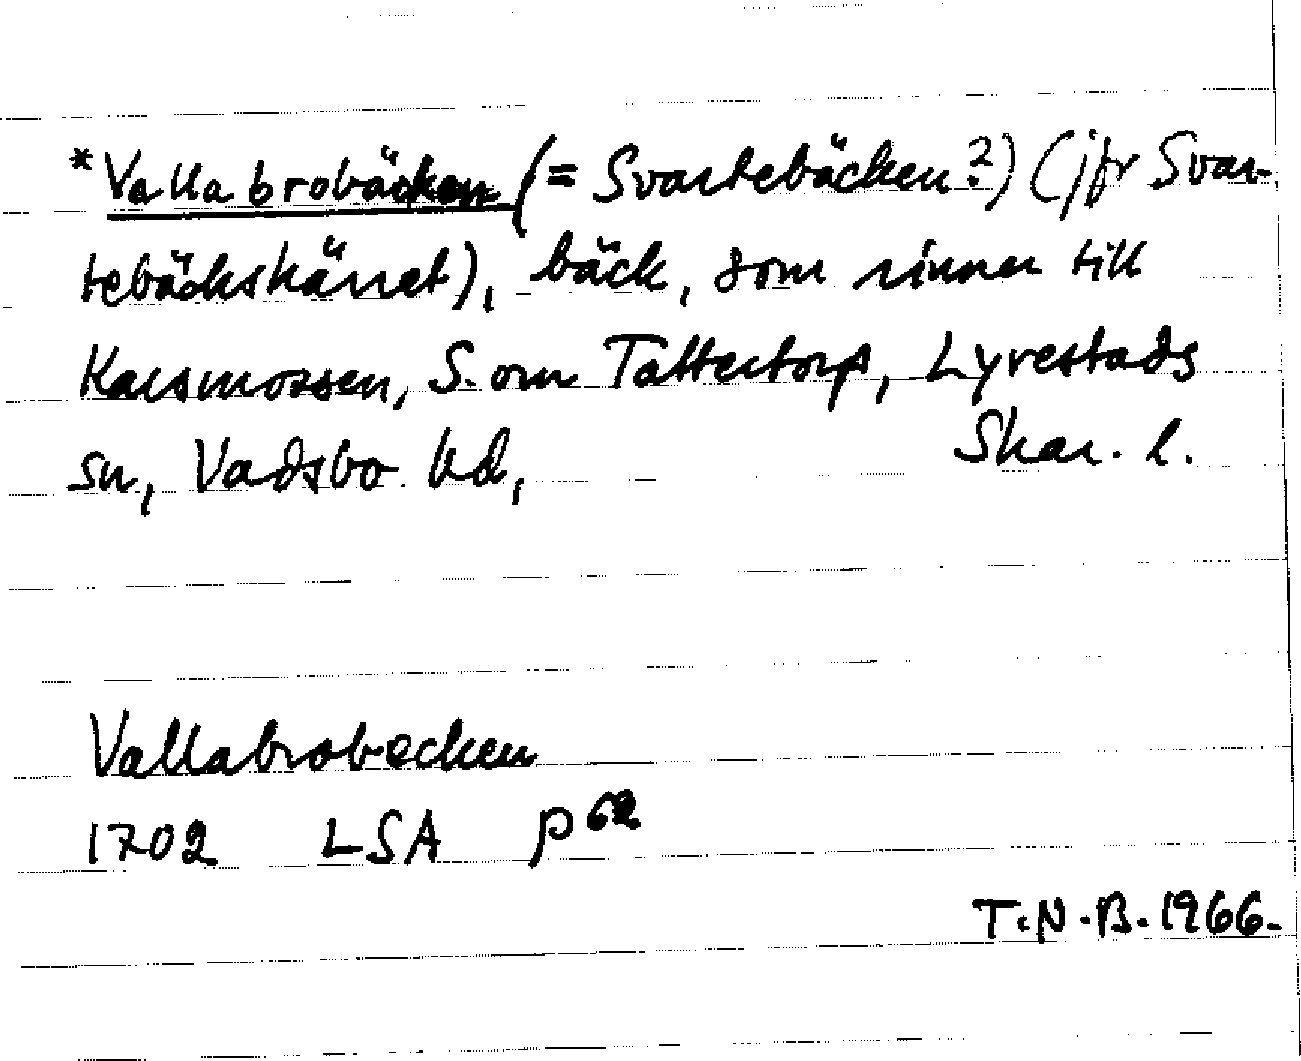 *Vallabrobäcken (= Svartebäcken?) (jfr Svar-
tebäckskärret), bäck, som rinner till
Karsmossen, S. om Tattertorp, Lyrestads
sn, Vadsbo hd, Skar. l.
Vallabrobecken
1702 LSA P 62
T.N.B. 1966.